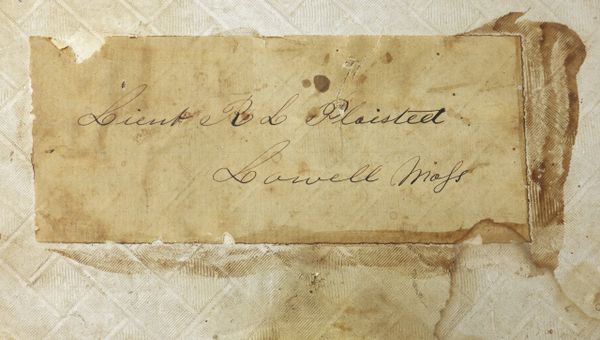 Lieut R L Plaisted
Lowell Mass